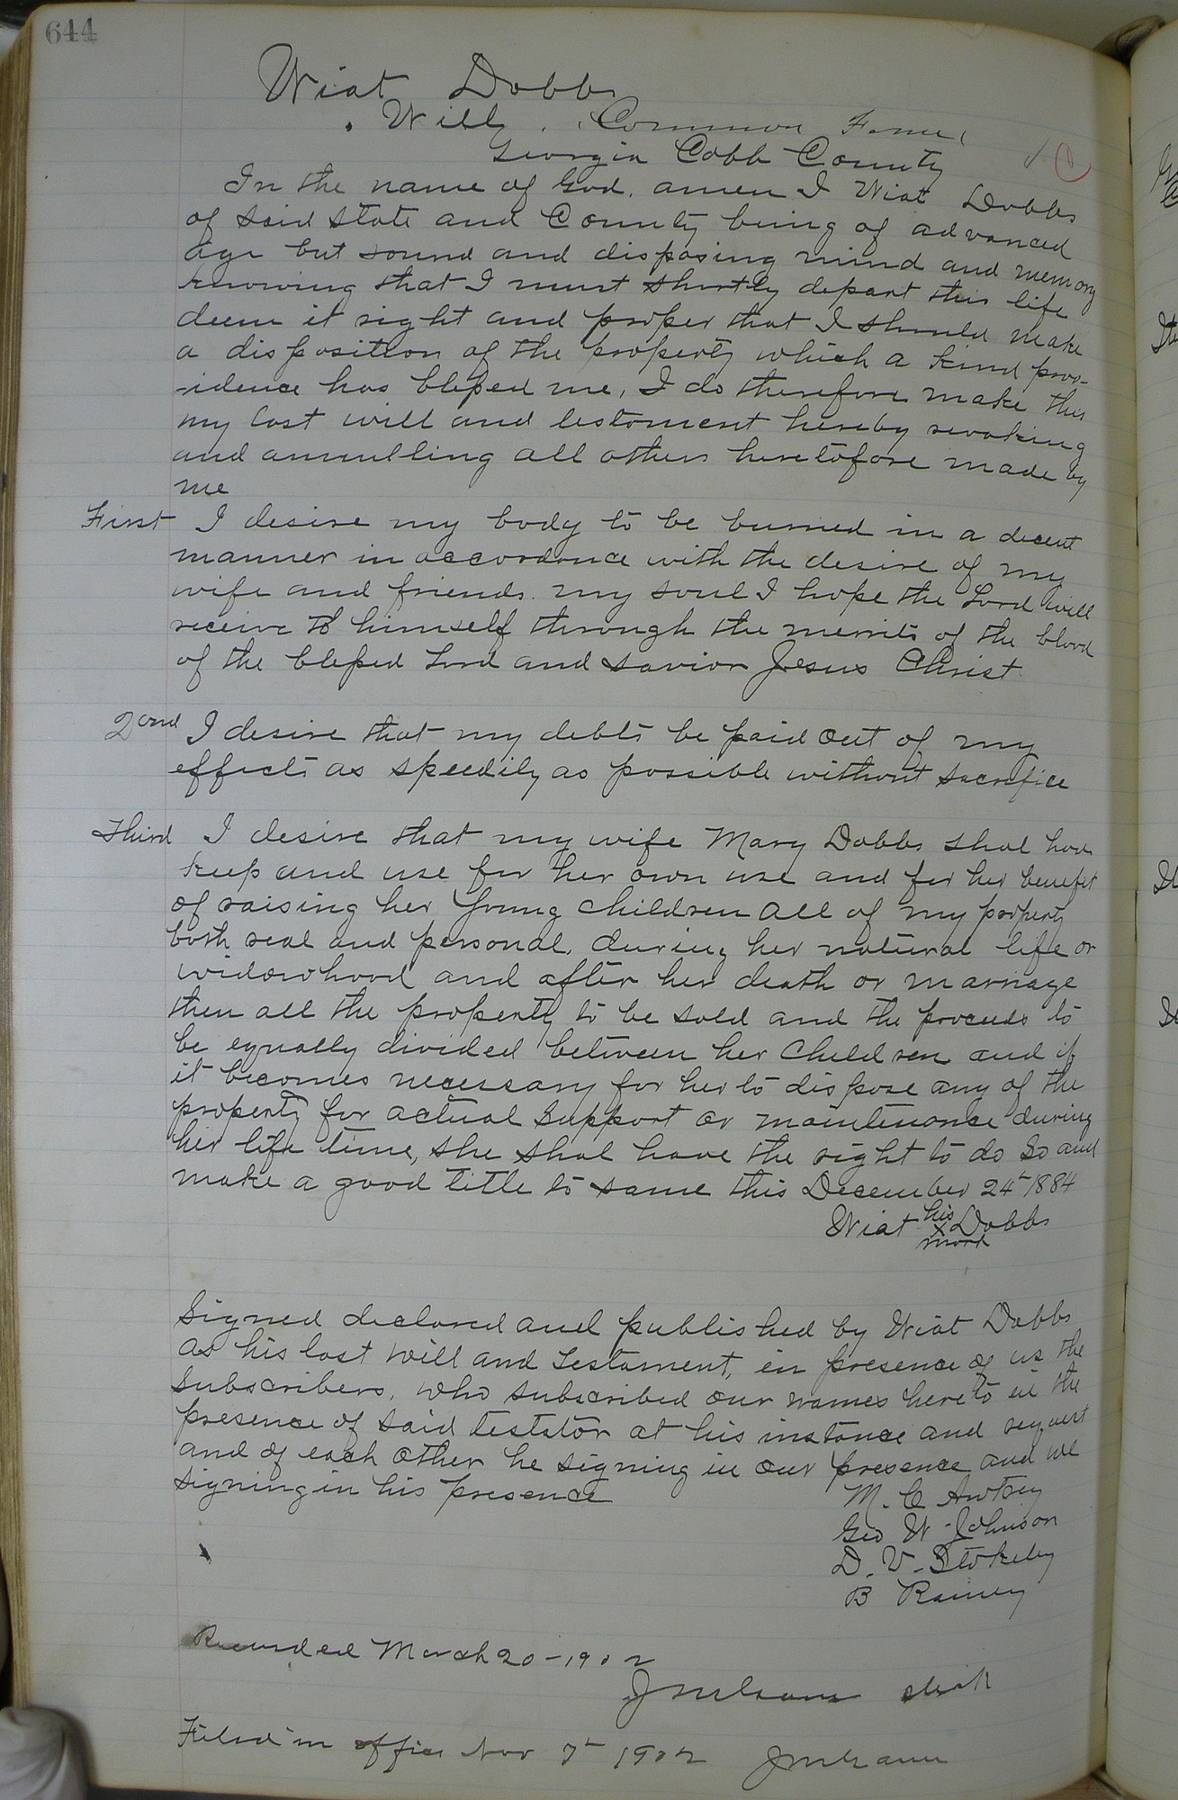 644
Wiat Dobbs
Will. Common Form
Georgia Cobb County
In the name of God. amen I Wiat Dobbs
of said state and County being of advanced
age but sound and disposing mind and memory
knowing that I must shortly depart this life
deem it right and proper that I should make
a disposition of the property which a kind prov-
-idence has blessed me, I do therefore make this
my last will and testament hereby revoking
and annulling all others heretofore made by
me
First I desire my body to be burried in a decent
manner in accordance with the desire of my
wife and friends. my soul I hope the Lord will
receive to himself through the merrits of the blood
of the blessed Lord and savior Jesus Christ
2ond I desire that my debts be paid out of my
effects as speedily as possible without sacrifice
Third I desire that my wife Mary Dobbs shal have
keep and use for her own use and for her benefit
of raising her young children all of my property
both real and personal, during her natural life or
widowhood and after her death or marriage
then all the property to be sold and the proceeds to
be equally divided between her children and if
it becomes necessary for her to dispose any of the
property for actual support or maintenance during
her life time, she shal have the right to do so and
make a good title to same this December 24th 1884
Wiat his Dobbs
X
mark
Signed declared and published by Wiat Dobbs
as his last will and testament, in presence of us the
subscribers, who subscribed our names hereto in the
presence of said teststor at his instance and request
and of each other he signing in our presence and we
signing in his presence
M. C Awtrey
Geo W Johnson
D. V. Stokely
B Ramey
Recorded March 20-1902
Filed in office Nov 7th 1902